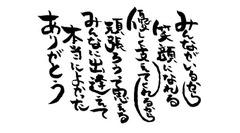 みんながいるから
笑顔になれる
優しく支えてくれるから
頑張ろうって思える
みんなに出逢えて
本当によかった
ありがとう